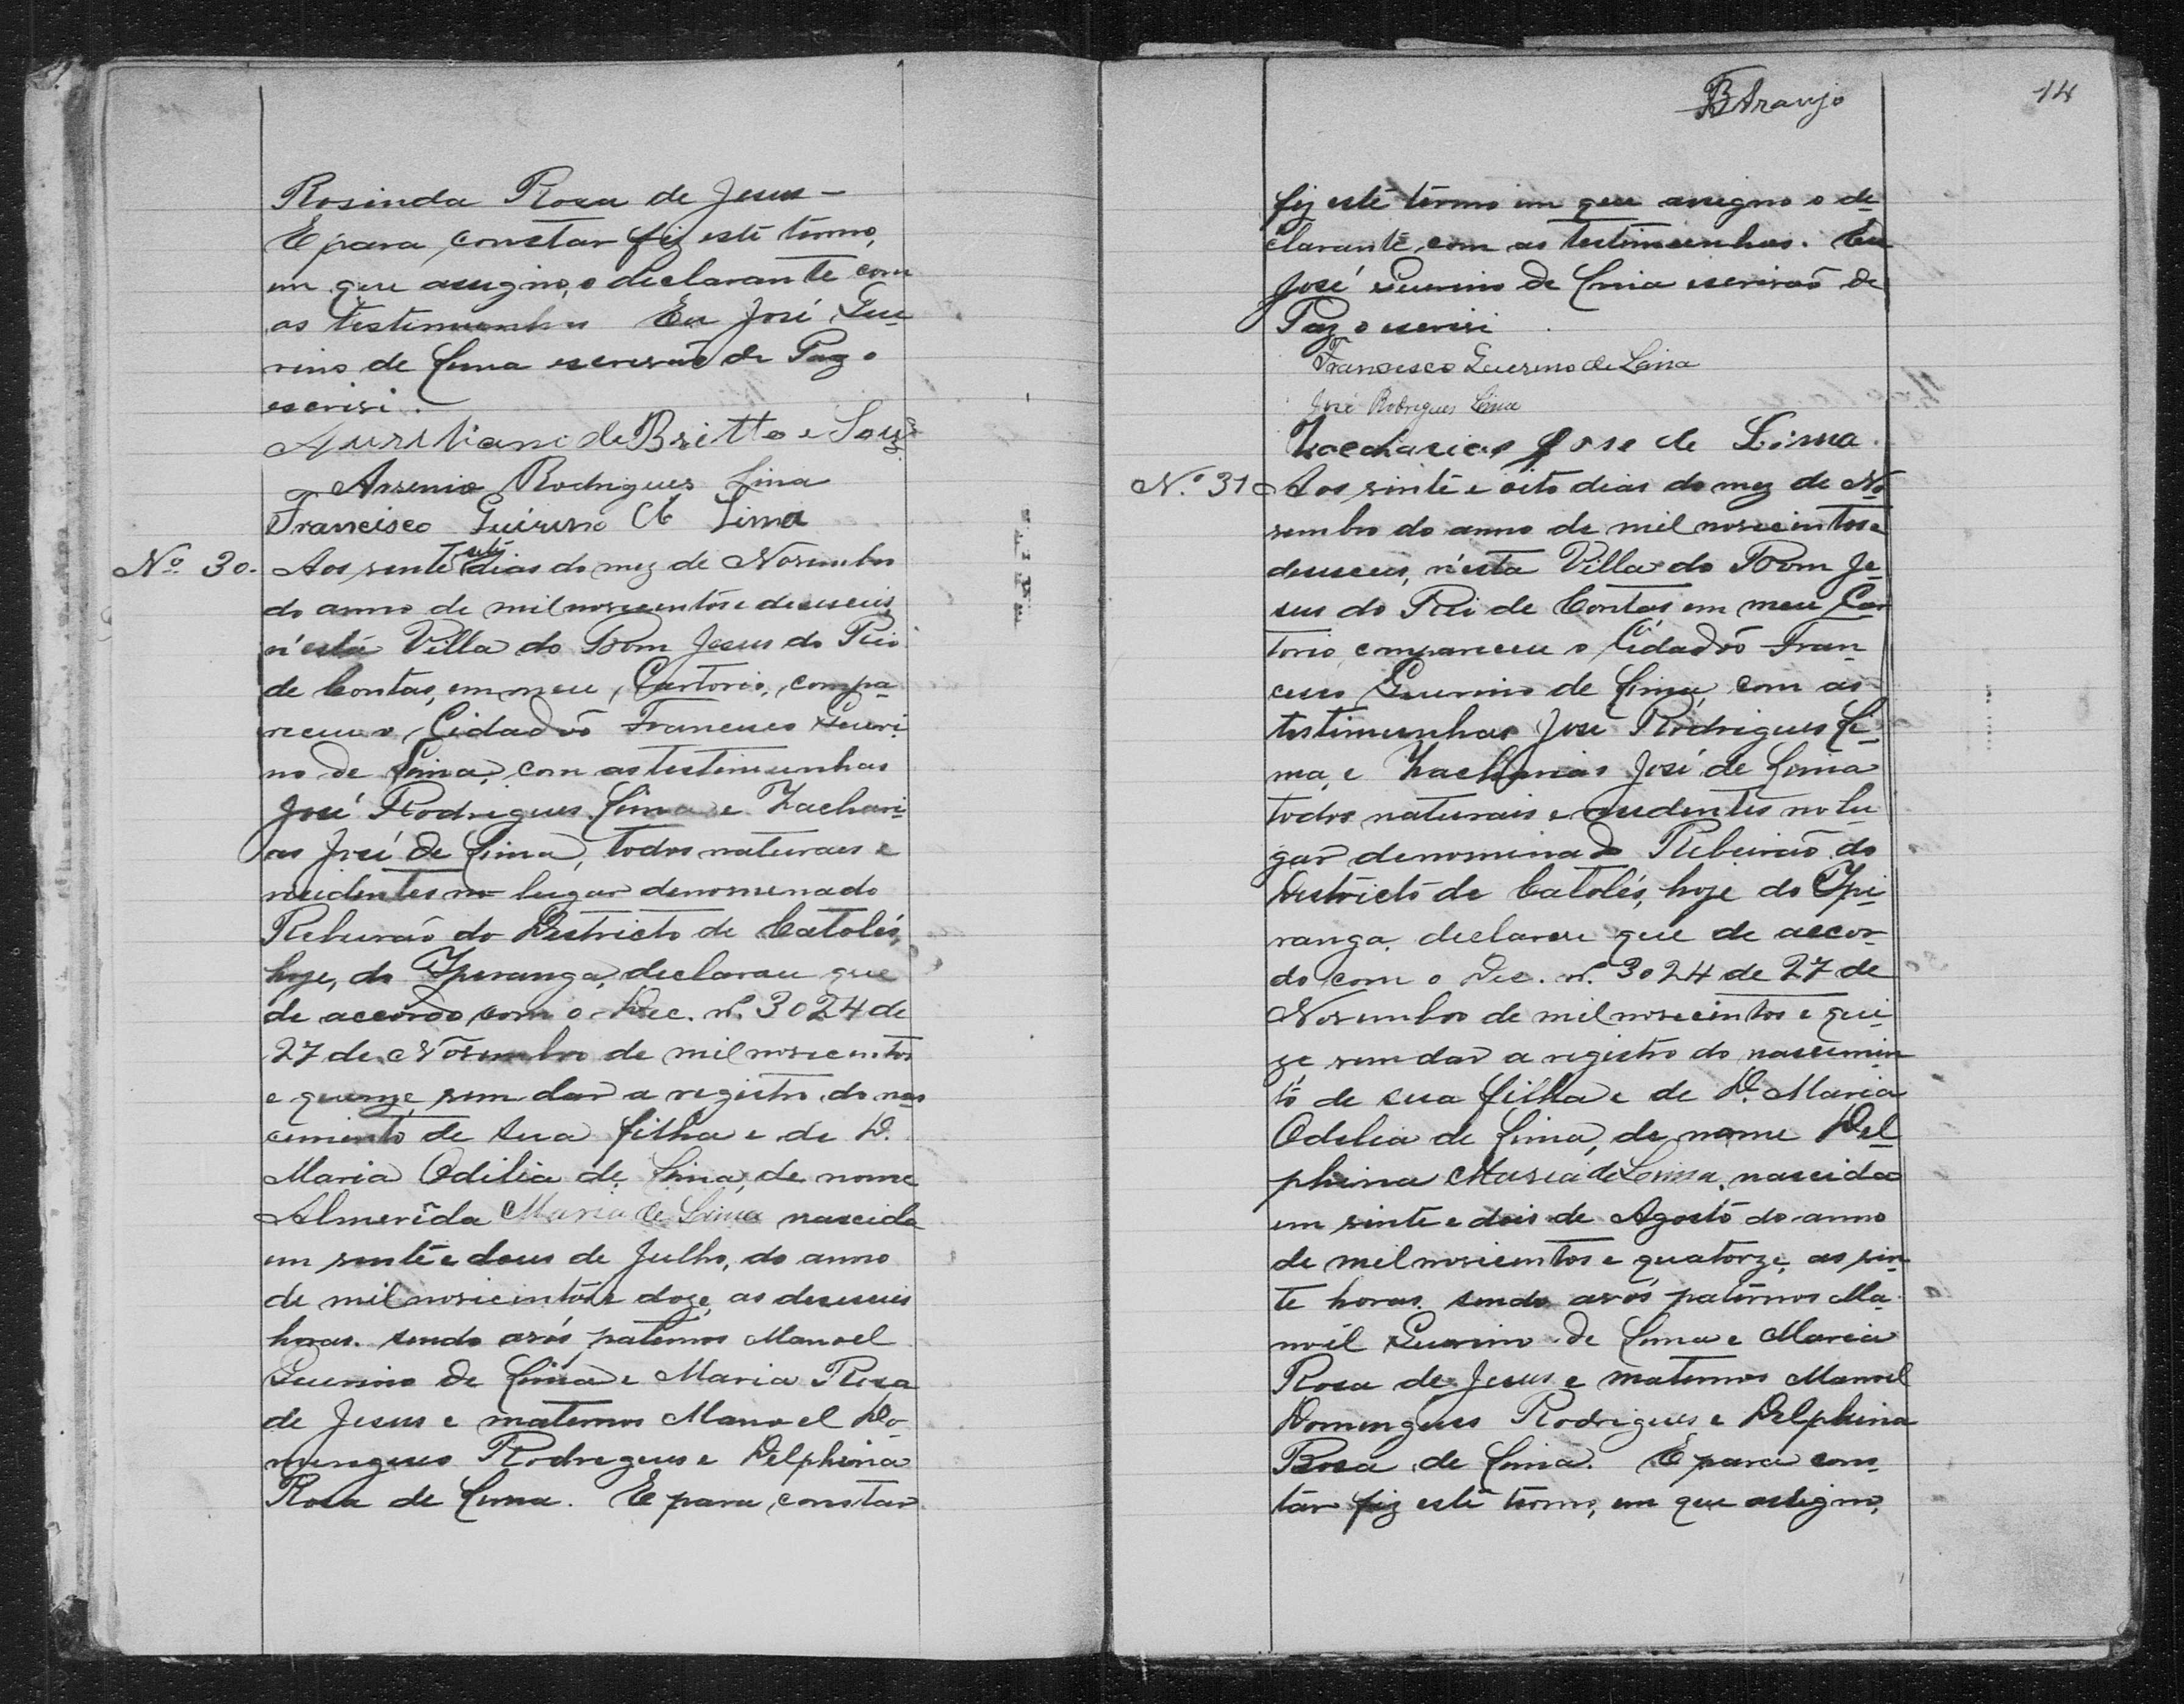 Rosinda Rosa de Jesus —
E para constar fiz este termo,
em que assigno, o declarante com
as testimunhas Eu José Gue-
rino de Lima escrivão de Paz o
escrivi.
Aureliano de Britto e Souza
Arsenio Rodrigues Lima
Francisco Guirino de Lima
Nº 30. Aos vente sete dias do mez de Novembro
do anno de mil novecentos e deseseis,
n'esta Villa do Bom Jesus do Rio
de Contas, em meu Cartorio, compa-
receu o Cidadão Francisco Gueri-
no de Lima, com as testimunhas
José Rodrigues Lima e Zachari-
as José de Lima, todos naturaes e
residentes no lugar denomenado
Ribeirão do Destricto de Catolés,
hoje, do Yperanga, declarou que
de accordo com o Dec. nº 3024 de
27 de Novembro de mil novecentos
e quinze, vem dar a registro do nas
cimento de sua filha e de D.
Maria Odilia de Lima, de nome
Almerinda Maria de Lima nascida
em vente e dous de Julho, do anno
de mil novecentos e doze, as deseseis
horas. sendo avós paternos Manoel
Guerino de Lima e Maria Rosa
de Jesus e maternos Manoel Do-
mingues Rodrigues e Delphina
Rosa de Lima. E para constar
B Araujo
14
fiz este termo em que assigno o de-
clarante com as testimunhas. Eu
José Guerino de Lima escrivão de
Paz o escrivi
Francisco Guerino de Lima
José Rodrigues Lima
Zaccharias Jose de Lima
Nº 31 Aos vinte e oito dias do mez de No-
vembro do anno de mil novecentos e
deseseis, n'esta Villa do Bom Je-
sus do Rio de Contas, em meu Car
torio, compareceu o Cidadão Fran-
cisco Guerino de Lima, com as
testimunhas José Rodrigues Li-
ma, e Zacharias José de Lima
todos naturais e residentes no lu-
gar denominado Ribeirão do
Destricto de Catolés, hoje do Ypi-
ranga, declarou que de accor-
do com o Dec. nº 3024 de 27 de
Novembro de mil novecentos e quin-
ze, vem dar a registro do nascimen
to de sua filha e de D. Maria
Odelia de Lima, de nome Del-
phina Maria de Lima, nascida
em vinte e dois de Agosto do anno
de mil novecentos e quatorze, as vin-
te horas. sendo avós paternos Ma-
noel Guerino de Lima e Maria
Rosa de Jesus e maternos Manoel
Domingues Rodrigues e Delphina
Rosa de Lima. E para cons-
tar fiz este termo, em que assigno,